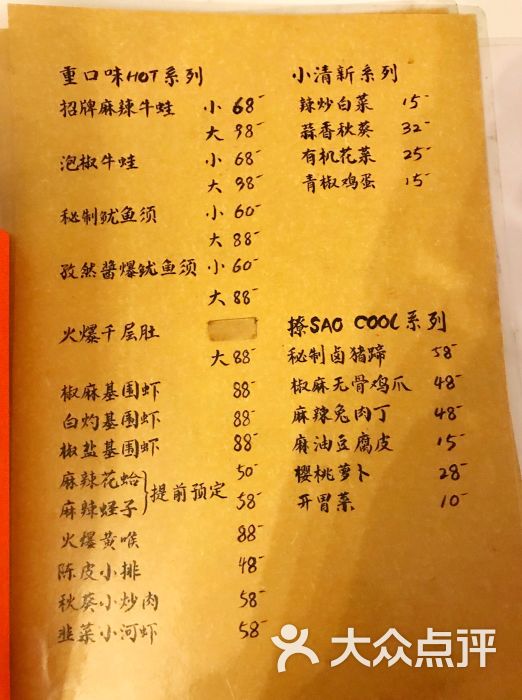 重口味HOT系列
招牌麻辣牛蛙 小 68-
大 98-
泡椒牛蛙 小 68-
大 98-
秘制鱿鱼须 小 60-
大 88-
孜然酱爆鱿鱼须 小 60-
大 88-
火爆千层肚
大 88-
椒麻基围虾 88-
白灼基围虾 88-
椒盐基围虾 88-
麻辣花蛤 50-
提前预定
麻辣蛏子 58-
火爆黄喉 88-
陈皮小排 48-
秋葵小炒肉 58-
韭菜小河虾 58-
小清新系列
辣炒白菜 15-
蒜香秋葵 32-
有机花菜 25-
青椒鸡蛋 15-
撩SAO COOL系列
秘制卤猪蹄 58-
椒麻无骨鸡爪 48-
麻辣兔肉丁 48-
麻油豆腐皮 15-
樱桃萝卜 28-
开胃菜 10-
大众点评